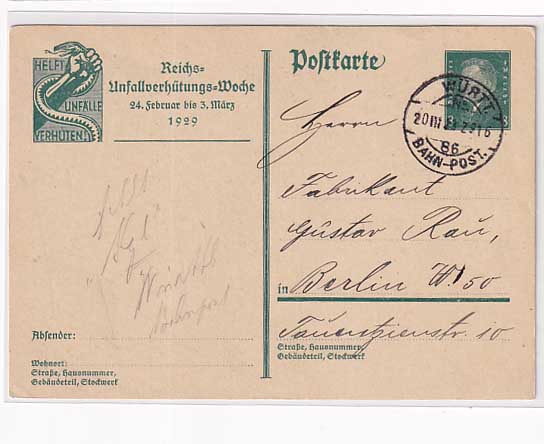 HELFT
UNFÄLLE
VERHÜTEN!
Reichs-
Unfallverhütungs-Woche
24. Februar bis 3. März
1929
Postkarte
8
WÜRTT.
20 III 29 Z 316
86
BAHN-POST.
Herrn
Fabrikant
Gustav Rau,
in Berlin W. 50
Tauentzienstr. 10
Straße, Hausnummer,
Gebäudeteil, Stockwerk
Bahnpost
Absender:
Wohnort:
Straße, Hausnummer,
Gebäudeteil, Stockwerk